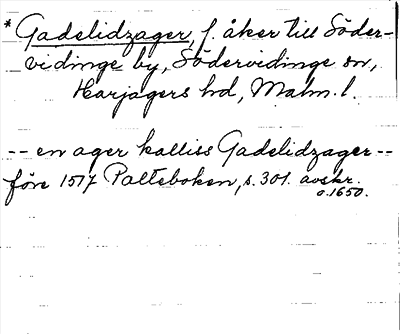 * Gadelidzager, f. åker till Söder-
vidinge by, Södervidinge sn,
Harjagers hd, Malm. l.
-- en ager kalliss Gadelidzager --
före 1517 Palteboken, s. 301. avskr.
o. 1650.